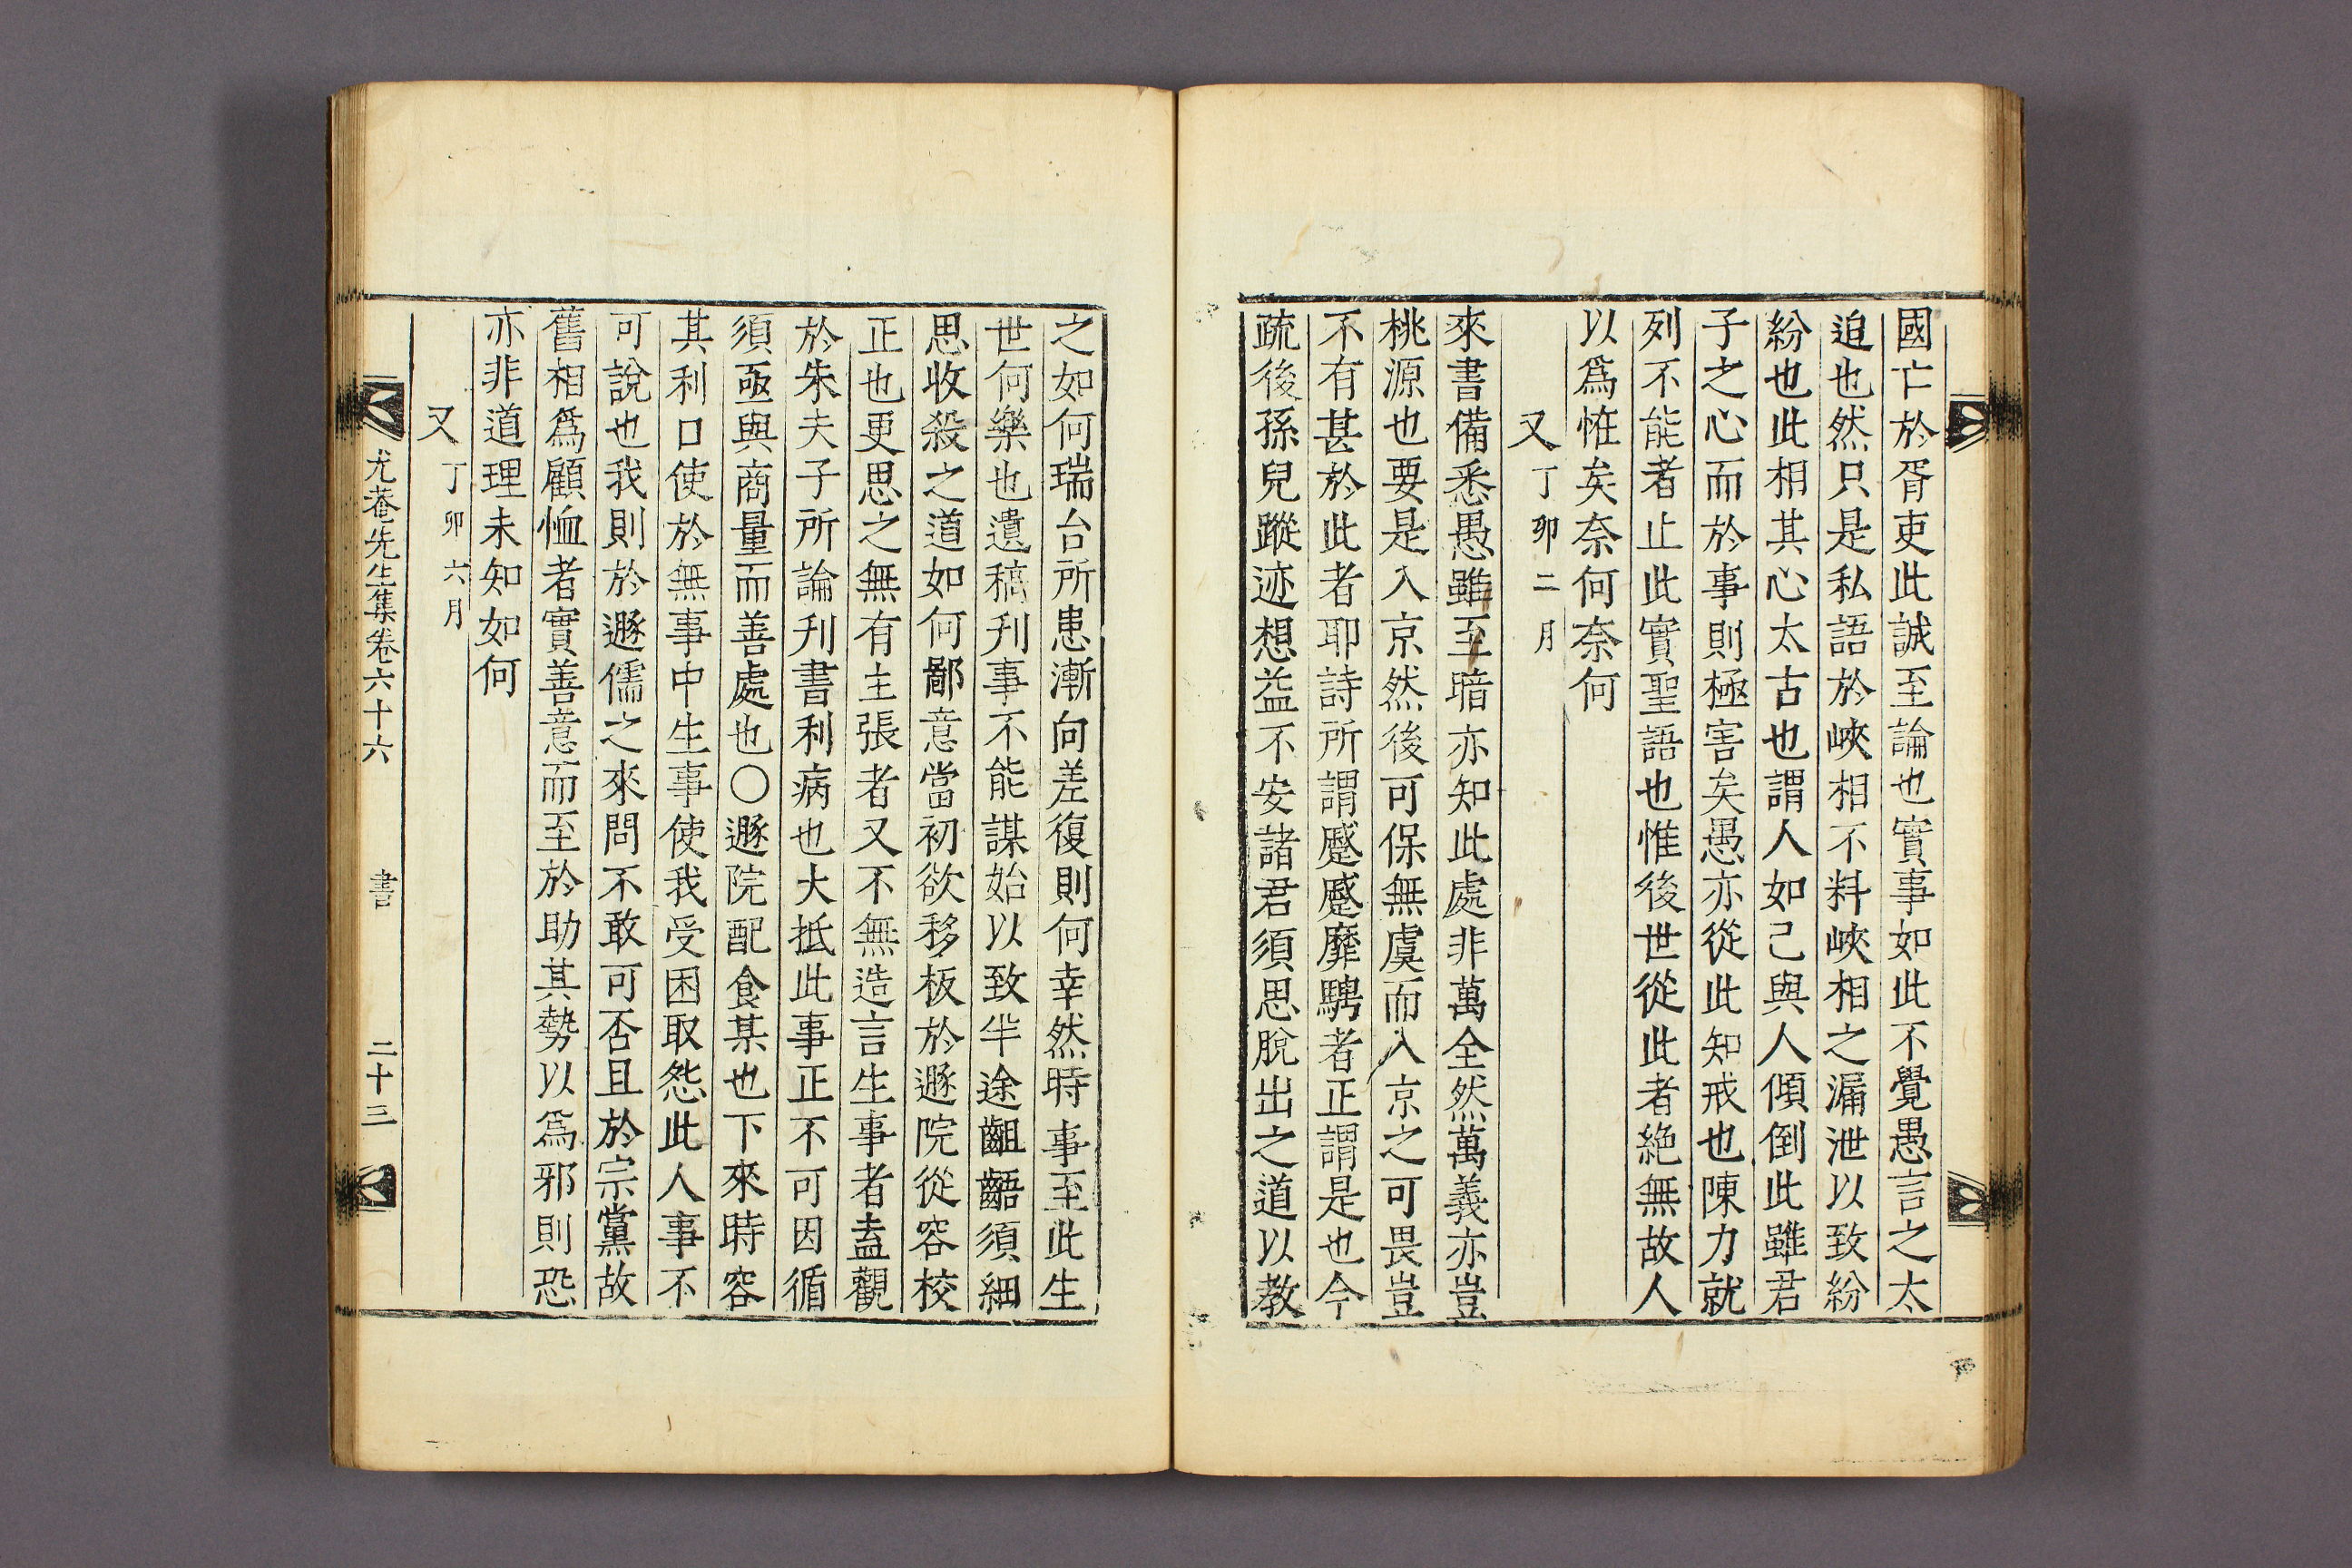 國亡於胥吏此誠至論也實事如此不覺愚言之太
追也然只是私語於峽相不料峽相之漏泄以致紛
紛也此相其心太古也謂人如己與人傾倒此雖君
子之心而於事則極害矣愚亦從此知戒也陳力就
列不能者止此實聖語也惟後世從此者絶無故人
以爲恠矣奈何奈何
又丁卯二月
來書備悉愚雖至暗亦知此處非萬全然萬義亦豈
桃源也要是入京然後可保無虞而入京之可畏豈
不有甚於此者耶詩所謂蹙蹙靡騁者正謂是也今
疏後孫兒蹤迹想益不安諸君須思脫出之道以教
之如何瑞台所患漸向差復則何幸然時事至此生
世何樂也遺稿刋事不能謀始以致半途齟齬須細
思收殺之道如何鄙意當初欲移板於遯院從容校
正也更思之無有主張者又不無造言生事者盍觀
於朱夫子所論刋書利病也大抵此事正不可因循
須亟與商量而善處也○遯院配食某也下來時容
其利口使於無事中生事使我受困取怨此人事不
可說也我則於遯儒之來問不敢可否且於宗黨故
舊相爲顧恤者實善意而至於助其勢以爲邪則恐
亦非道理未知如何
又丁卯六月
尤菴先生集卷六十六 書 二十三